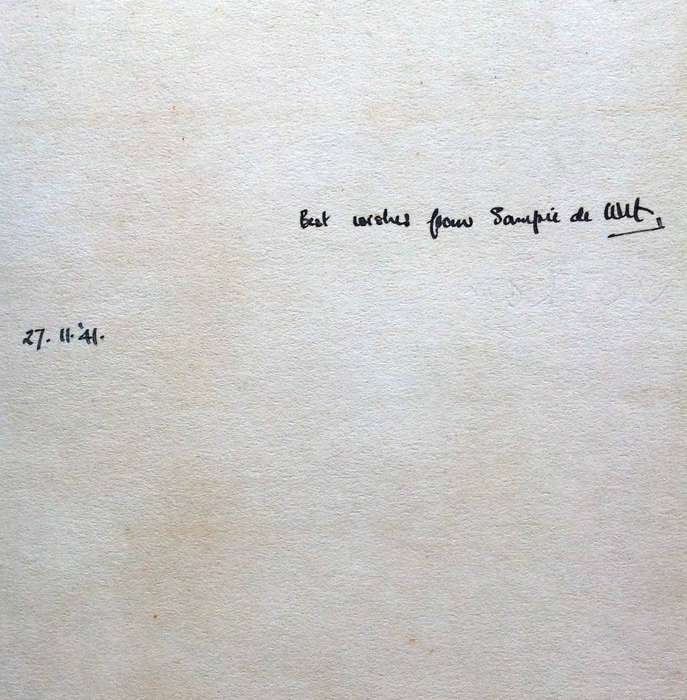 Best wishes from Sampie de Wet,
27. 11. '41.